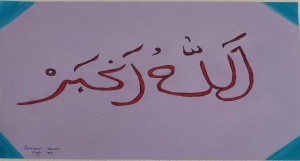 اَللّهُ اَكبَرْ